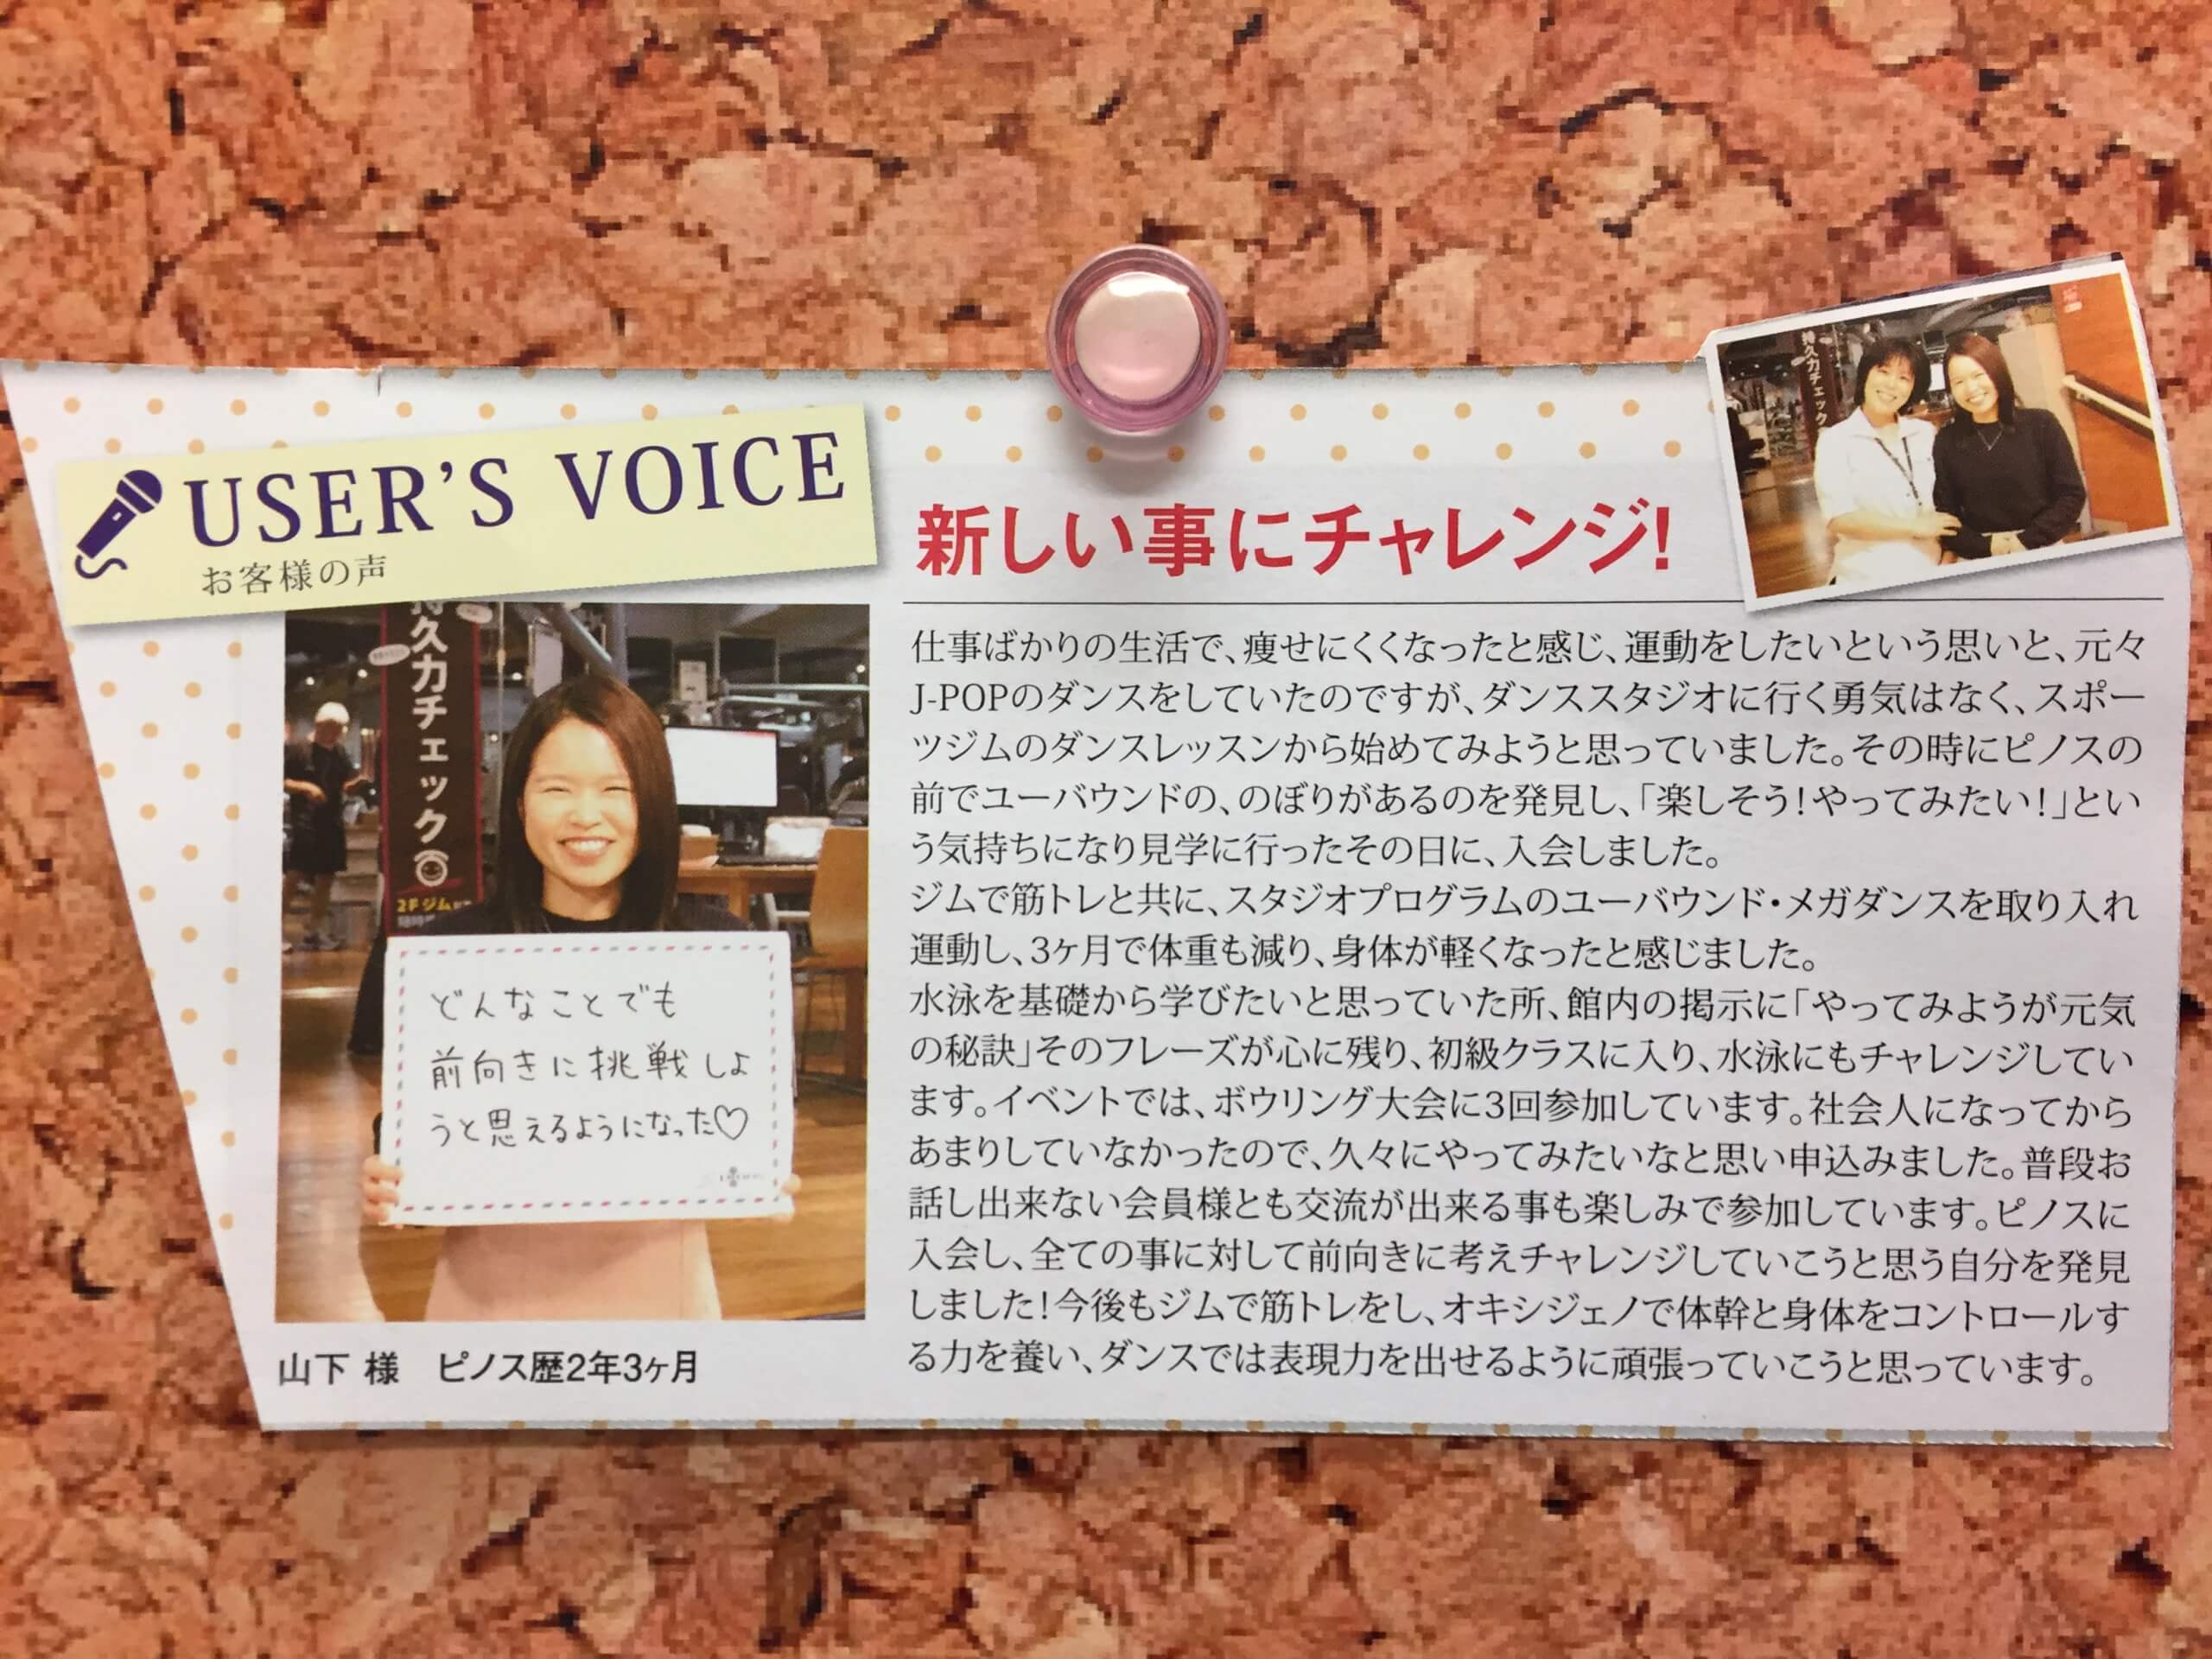 USER'S VOICE
お客様の声
持久力チェック
2F ジム
どんなことでも
前向きに挑戦しよ
うと思えるようになった♡
山下 様　ピノス歴2年3ヶ月
持久力チェック
新しい事にチャレンジ!
仕事ばかりの生活で、痩せにくくなったと感じ、運動をしたいという思いと、元々
J-POPのダンスをしていたのですが、ダンススタジオに行く勇気はなく、スポー
ツジムのダンスレッスンから始めてみようと思っていました。その時にピノスの
前でユーバウンドの、のぼりがあるのを発見し、「楽しそう!やってみたい!」とい
う気持ちになり見学に行ったその日に、入会しました。
ジムで筋トレと共に、スタジオプログラムのユーバウンド・メガダンスを取り入れ
運動し、3ヶ月で体重も減り、身体が軽くなったと感じました。
水泳を基礎から学びたいと思っていた所、館内の掲示に「やってみようが元気
の秘訣」そのフレーズが心に残り、初級クラスに入り、水泳にもチャレンジしてい
ます。イベントでは、ボウリング大会に3回参加しています。社会人になってから
あまりしていなかったので、久々にやってみたいなと思い申込みました。普段お
話し出来ない会員様とも交流が出来る事も楽しみで参加しています。ピノスに
入会し、全ての事に対して前向きに考えチャレンジしていこうと思う自分を発見
しました!今後もジムで筋トレをし、オキシジェノで体幹と身体をコントロールす
る力を養い、ダンスでは表現力を出せるように頑張っていこうと思っています。